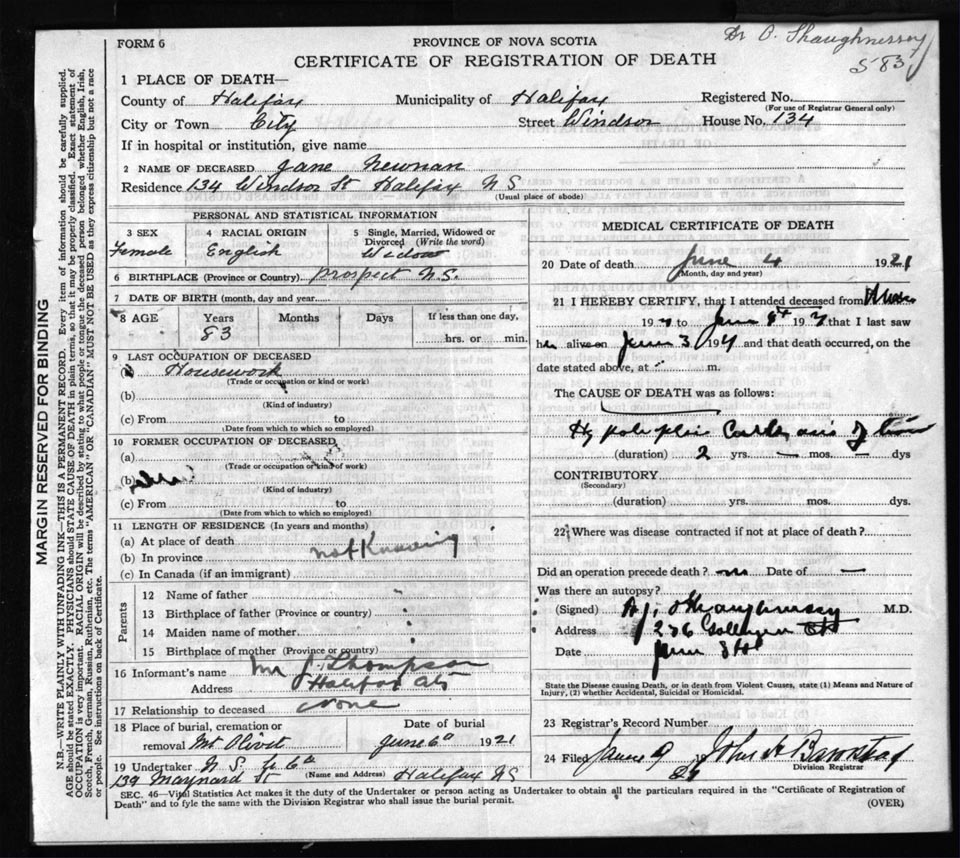 Dr O. Shaughnessey
583
FORM 6
PROVINCE OF NOVA SCOTIA
CERTIFICATE OF REGISTRATION OF DEATH
1 PLACE OF DEATH—
County of Halifax Municipality of Halifax Registered No.
(For use of Registrar General only)
City or Town City Street Windsor House No. 134
If in hospital or institution, give name
2 NAME OF DECEASED Jane Newnan
Residence 134 Windsor St Halifax N S
(Usual place of abode)
PERSONAL AND STATISTICAL INFORMATION
3 SEX 4 RACIAL ORIGIN 5 Single, Married, Widowed or Divorced (Write the word)
Female English Widow
6 BIRTHPLACE (Province or Country) Prospect N.S.
7 DATE OF BIRTH (month, day and year)
8 AGE Years Months Days If less than one day,
83 hrs. or min.
9 LAST OCCUPATION OF DECEASED
(a) Housework
(Trade or occupation or kind or work)
(b)
(Kind of industry)
(c) From to
(Date from which to which so employed)
10 FORMER OCCUPATION OF DECEASED
(a)
(Trade or occupation or kind of work)
(b)
(Kind of industry)
(c) From to
(Date from which to which so employed)
11 LENGTH OF RESIDENCE (In years and months)
(a) At place of death
(b) In province not Knowing
(c) In Canada (if an immigrant)
Parents
12 Name of father
13 Birthplace of father (Province or country)
14 Maiden name of mother
15 Birthplace of mother (Province or country)
16 Informant's name Mr J. Thompson
Address Halifax
17 Relationship to deceased none
18 Place of burial, cremation or Date of burial
removal Mt Olivet June 6 1921
19 Undertaker N. S. U Co
(Name and Address)
139 Maynard St Halifax NS
MEDICAL CERTIFICATE OF DEATH
20 Date of death June 4 1921
(Month, day and year)
21 I HEREBY CERTIFY, that I attended deceased from
192 to June 192 that I last saw
her alive on June 3 192 and that death occurred, on the
date stated above, at m.
The CAUSE OF DEATH was as follows:
(duration) 2 yrs. — mos. — dys
CONTRIBUTORY
(Secondary)
(duration) yrs. mos. dys.
22 Where was disease contracted if not at place of death?
Did an operation precede death? no Date of —
Was there an autopsy?
(Signed) O'Shaughnessy M.D.
Address 236 St
Date June
State the Disease causing Death, or in death from Violent Causes, state (1) Means and Nature of
Injury, (2) whether Accidental, Suicidal or Homicidal.
23 Registrar's Record Number
24 Filed John A Barnstead
Division Registrar
SEC. 46—Vital Statistics Act makes it the duty of the Undertaker or person acting as Undertaker to obtain all the particulars required in the "Certificate of Registration of
Death" and to fyle the same with the Division Registrar who shall issue the burial permit. (OVER)
MARGIN RESERVED FOR BINDING
N.B.—WRITE PLAINLY WITH UNFADING INK—THIS IS A PERMANENT RECORD. Every item of information should be carefully supplied.
AGE should be stated EXACTLY. PHYSICIANS should STATE CAUSE OF DEATH in plain terms, so that it may be properly classified. Exact statement of
OCCUPATION is very important. RACIAL ORIGIN will be described by stating to what people or tongue the deceased person belonged whether English, Irish,
Scotch, French, German, Russian, Ruthenian, etc. The terms "AMERICAN" OR "CANADIAN" MUST NOT BE USED as they express citizenship but not a race
or people. See instructions on back of Certificate.